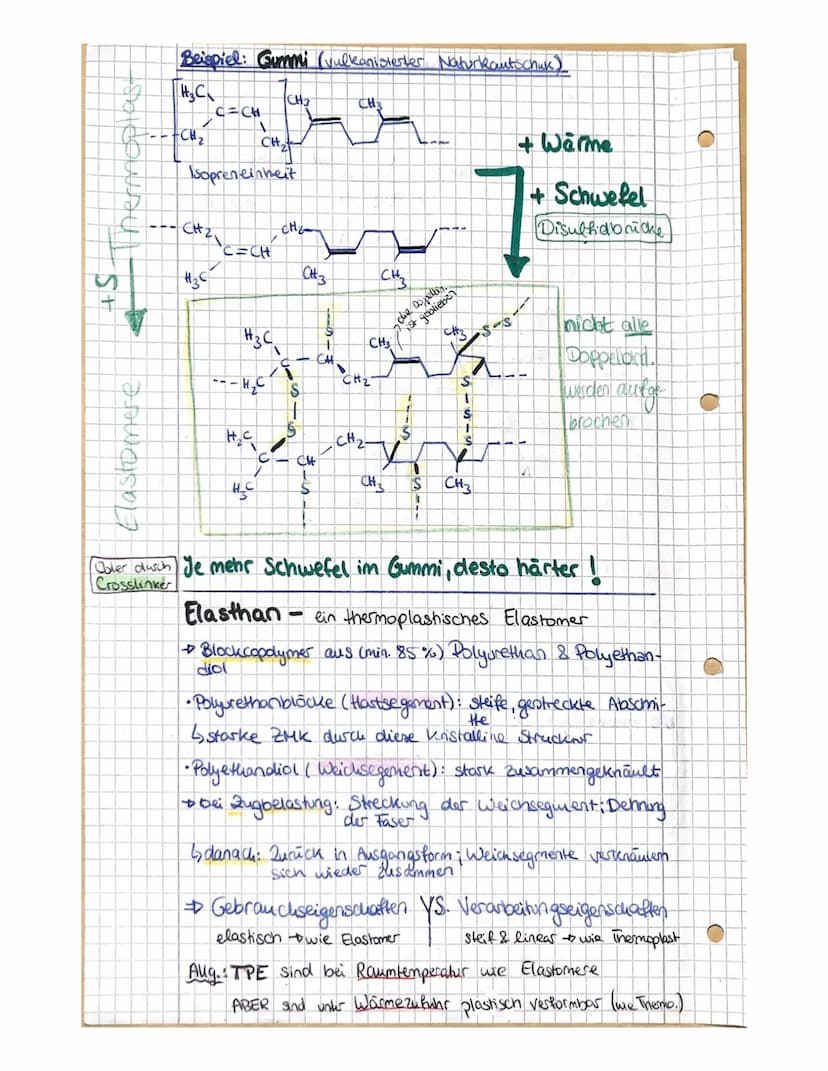 Beispiel: Gummi (vulkanisierter Naturkautschuk)
H₃C
C=CH
CH₂
CH₂
CH₃
CH₃
Isopreneinheit
+ Wärme
+ Schwefel
Disulfidbrücke
CH₂
C=CH
H₃C
CH₂
CH₃
CH₃
Thermoplast
+S
Elastomere
eine Doppelbin.
ist geblieben
H₃C
C – CH
H₂C
S
CH₂
CH₃
CH₃
S-S
S
S
S
S
S
H₂C
C – CH
H₃C
S
CH₂
S
CH₃
S
CH₃
nicht alle
Doppelbind.
werden aufge-
brochen
Oder durch
Crosslinker
Je mehr Schwefel im Gummi, desto härter!
Elasthan – ein thermoplastisches Elastomer
→ Blockcopolymer aus (min. 85 %) Polyurethan & Polyethan-
diol
· Polyurethanblöcke (Hartsegment): steife, gestreckte Abschni-
tte
↳ starke ZMK durch diese kristalline Struktur
· Polyethandiol (Weichsegement): stark zusammengeknäult
→ bei Zugbelastung: Streckung der Weichsegment; Dehnung
der Faser
↳ danach: Zurück in Ausgangsform; Weichsegmente verknäulen
sich wieder zusammen
⇒ Gebrauchseigenschaften VS. Verarbeitungseigenschaften
elastisch → wie Elastomer
steif & linear → wie Thermoplast
Allg.: TPE sind bei Raumtemperatur wie Elastomere
ABER sind unter Wärmezufuhr plastisch verformbar (wie Thermo.)